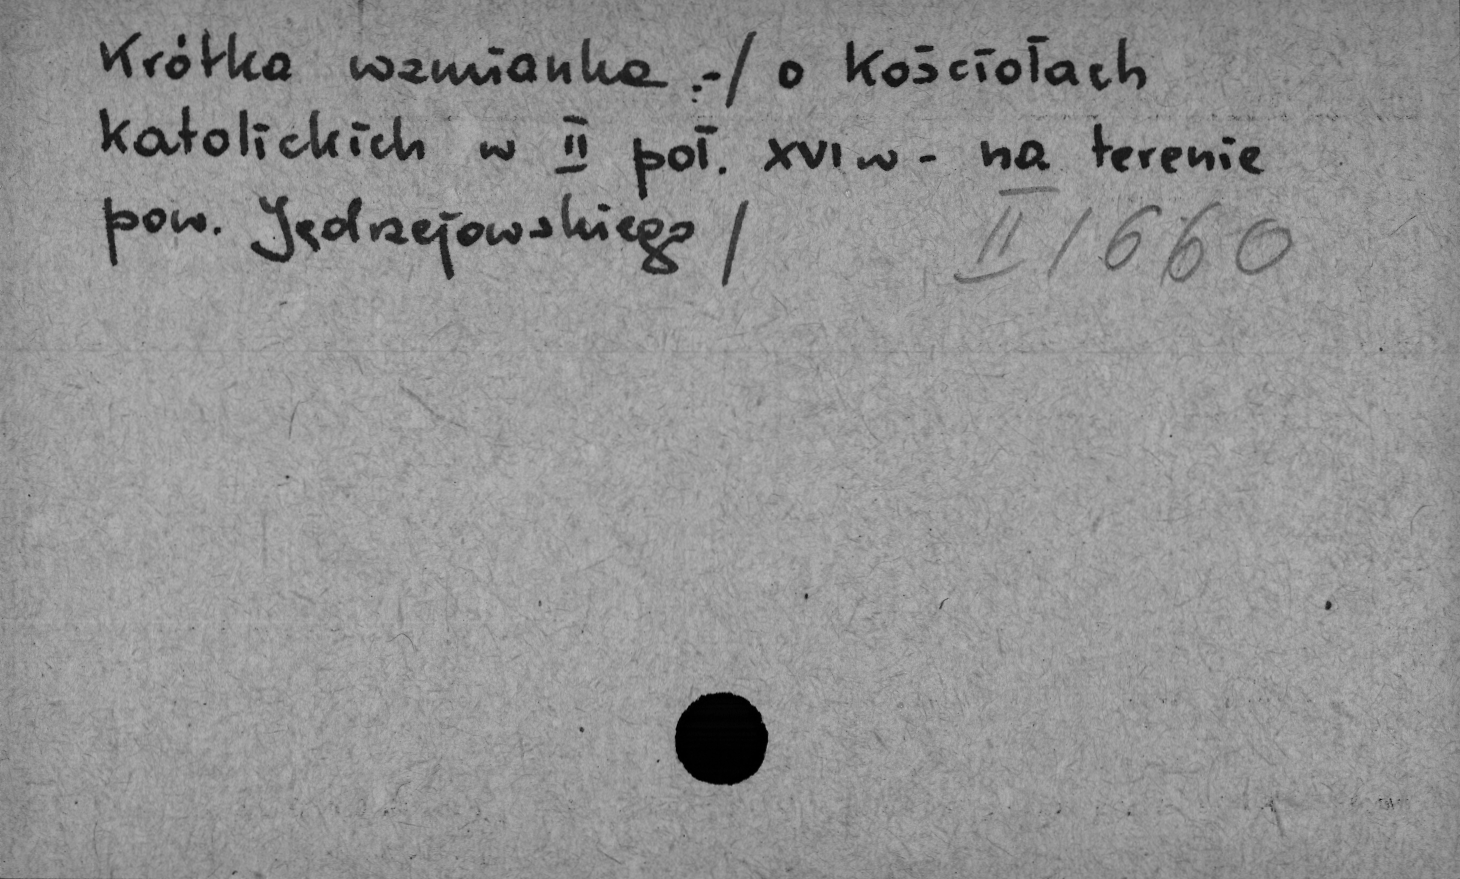 Krótka wzmianka :-/ o Kościołach
katolickich w II poł. XVI w - na terenie
pow. Jędrzejowskiego /
II/660